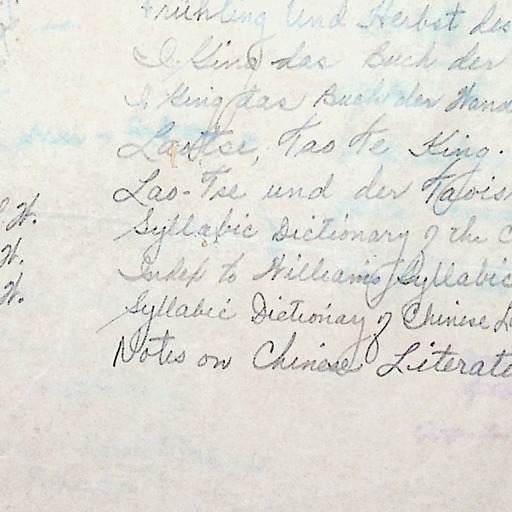 Frühling und Herbst des
I. Ging das Buch der
I Ging das Buch der Wand
Laotse, Tao Te King.
Lao-Tse und der Taois
W.
Syllabic Dictionary of the C
W.
Index to Williams Syllabic
W.
Syllabic Dictionay of Chinese L
Notes on Chinese Literat